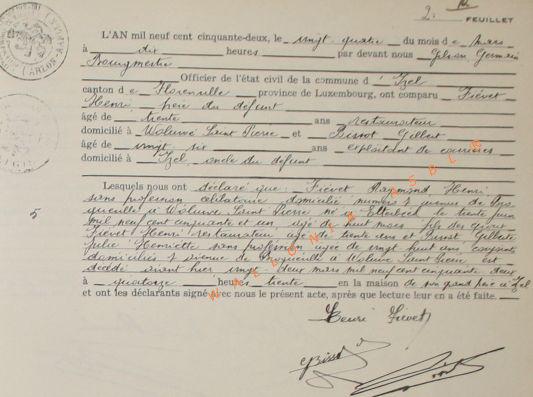 2. me
FEUILLET
L'AN mil neuf cent cinquante-deux, le vingt quatre du mois de mars
à dix heures par devant nous Gilson Germain
Bourgmestre
Officier de l'état civil de la commune d'Izel
canton de Florenville province de Luxembourg, ont comparu Fiévet
Henri père du défunt
âgé de trente ans restaurateur
domicilié à Woluwe Saint Pierre et Binot Gilbert
âgé de vingt six ans exploitant de carrières
domicilié à Izel, oncle du défunt
Lesquels nous ont déclaré que: Fiévet Raymond Henri
sans profession célibataire domicilié numéro 7 avenue de
à Woluwe Saint Pierre né à Etterbeek le trente juin
mil neuf cent cinquante et un, âgé de huit mois, fils des époux
Fiévet Henri restaurateur âgé de trente ans et Binot Gilberte
Julie Henriette sans profession âgée de vingt huit ans, conjoints
domiciliés 7 avenue de à Woluwe Saint Pierre est
décédé avant hier vingt deux mars mil neuf cent cinquante deux
à quatorze heures trente en la maison de son grand père à Izel
et ont les déclarants signé avec nous le présent acte, après que lecture leur en a été faite.
5
Henri Fiévet
GBinot
WALLONIA ASBL ©